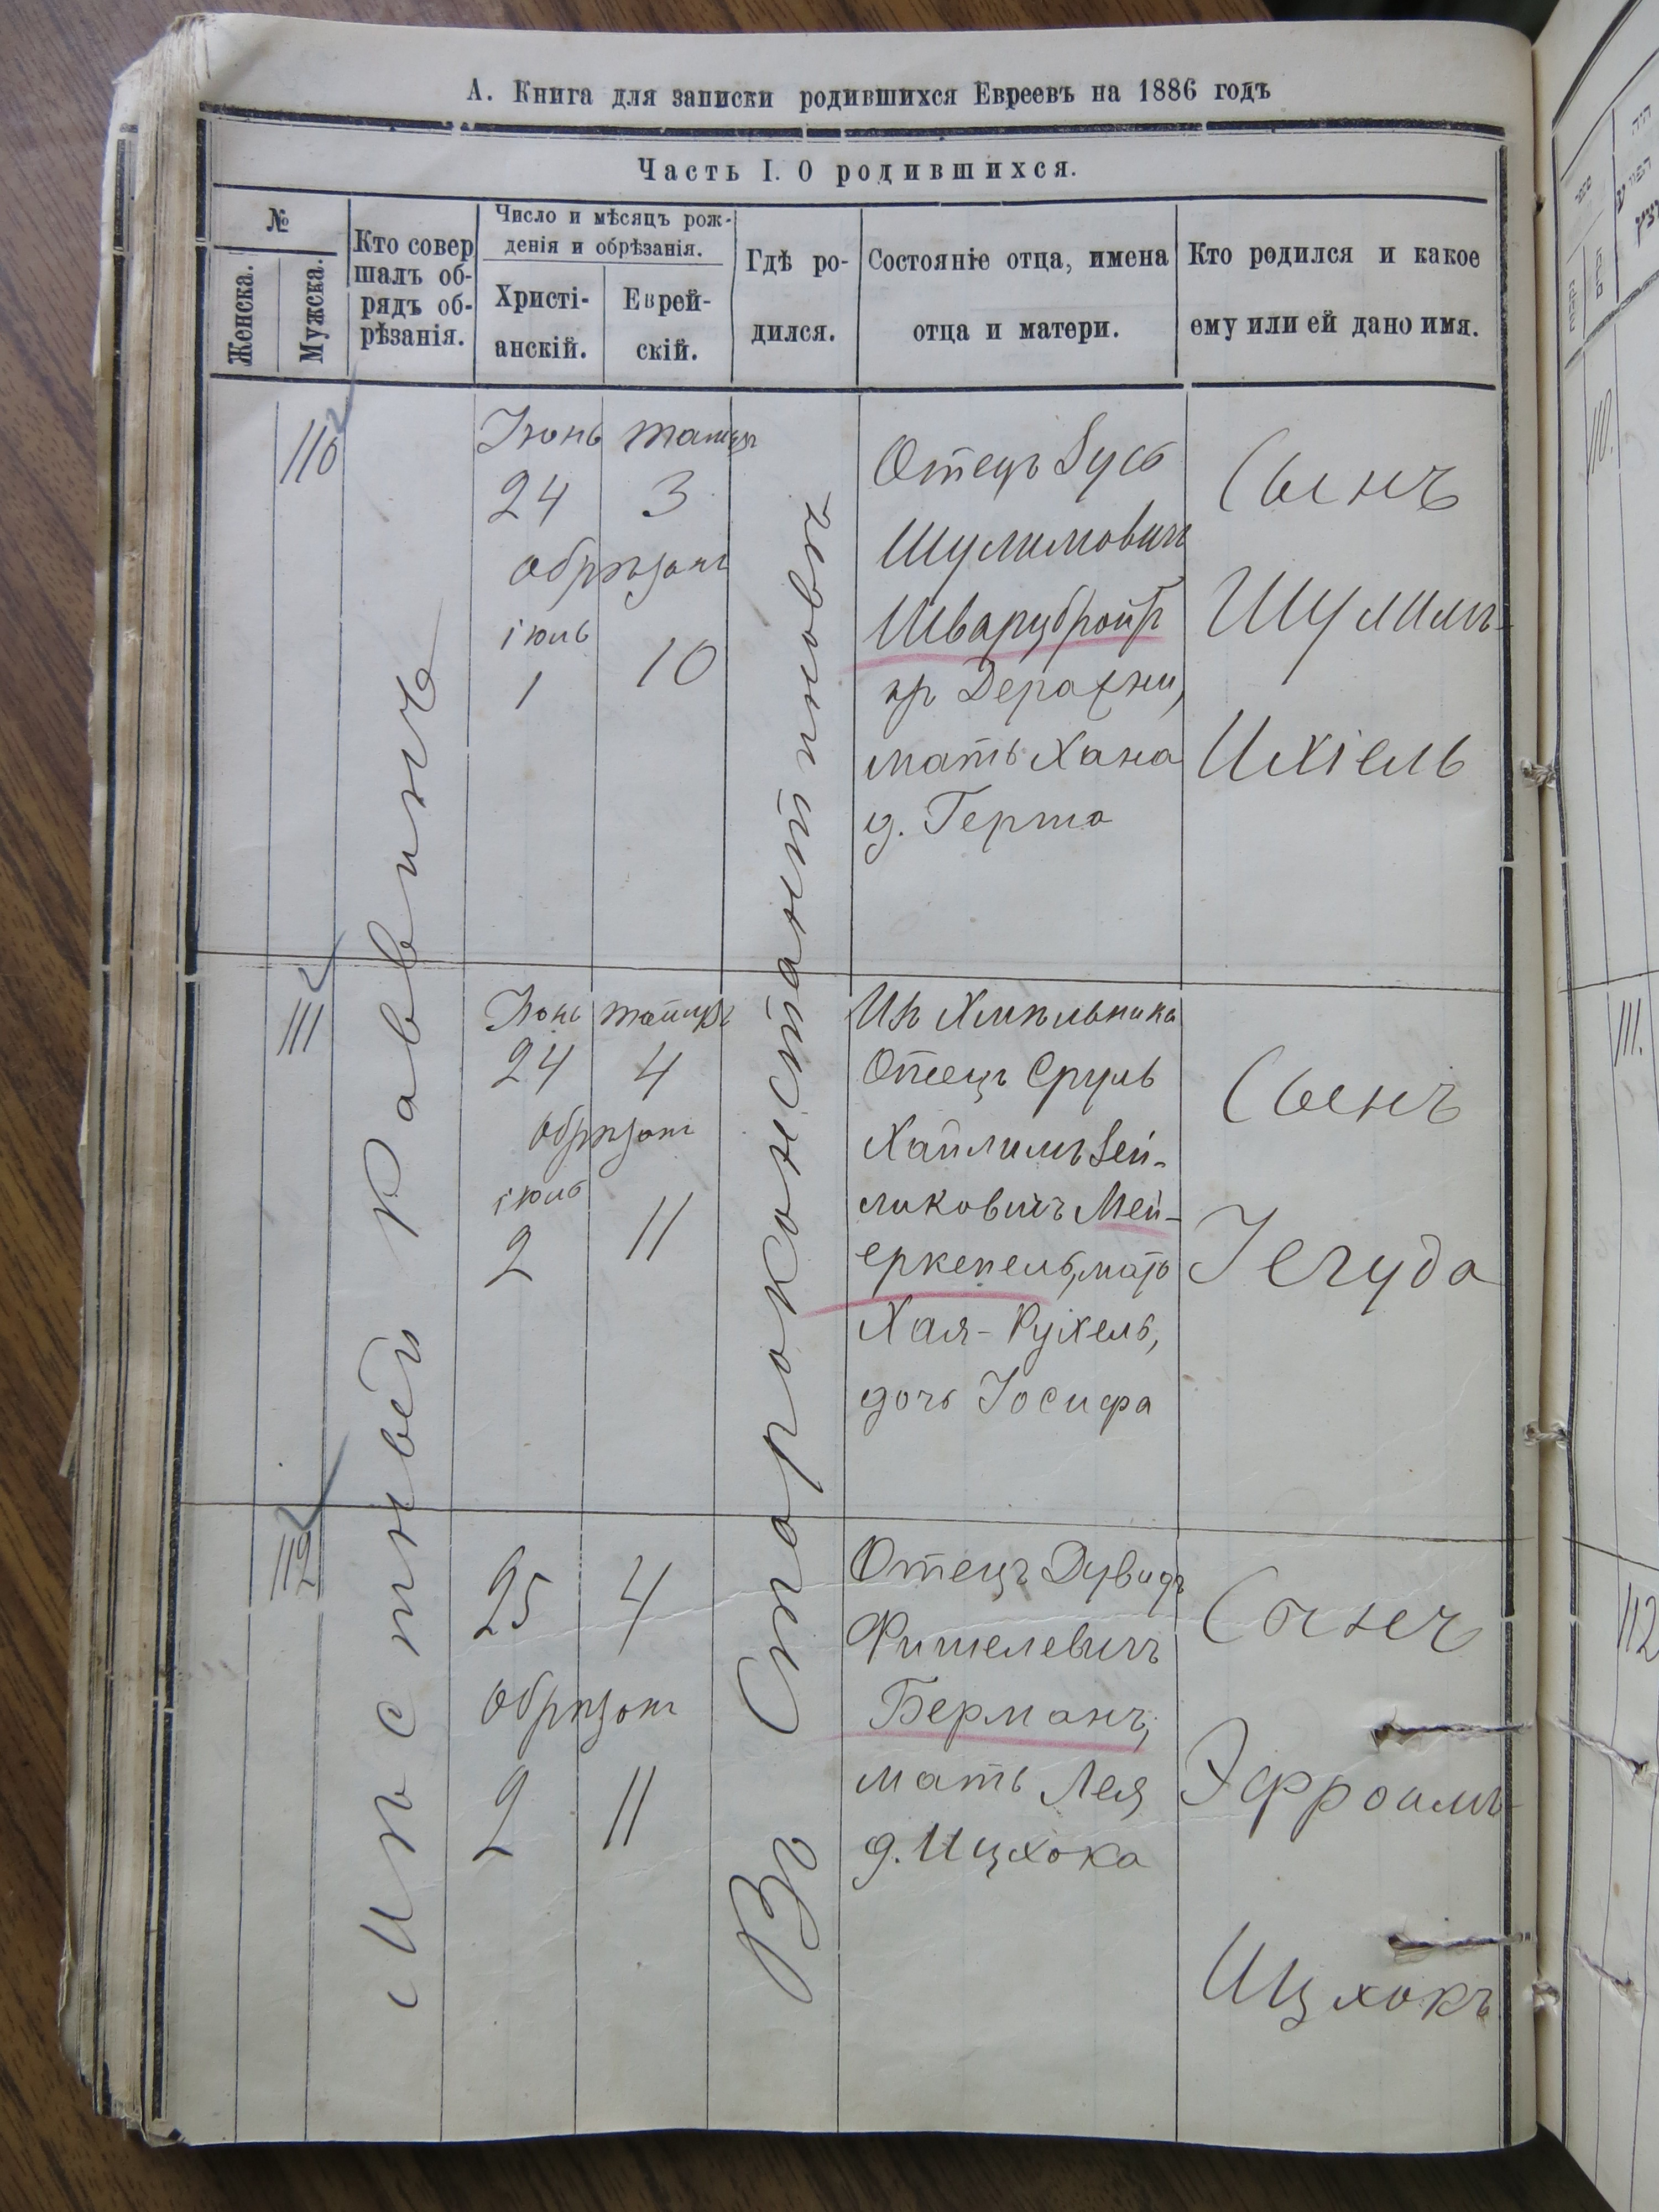 А. Книга для записки родившихся Евреевъ на 1886 годъ
Часть I. О родившихся.
№
Женска.
Мужска.
Кто совер
шалъ об-
рядъ об-
рѣзанія.
Число и мѣсяцъ рож-
денія и обрѣзанія.
Христі-
анскій.
Еврей-
скій.
Гдѣ ро-
дился.
Состояніе отца, имена
отца и матери.
Кто родился и какое
ему или ей дано имя.
Мѣстный Раввинъ
Въ Староконстантиновѣ
110
Іюнь
24
3
обрѣзанъ
іюль
1
10
Отецъ Зусь
Шулимовичъ
Шварцбройтъ
Деражни,
мать Хана
д. Герша
Сынъ
Шулимъ-
Ихіель
111
Іюнь
24
4
обрѣзанъ
іюль
2
11
Хмѣльника
Отецъ Сруль
Зей-
ликовичъ Мей-
еркепель, мать
Хая-Рухель,
дочь Іосифа
Сынъ
Іегуда
112
25
4
обрѣзанъ
2
11
Отецъ Дувидъ
Фишелевичъ
Берманъ,
мать Лея
д. Ицхока
Сынъ
Эфроимъ-
Ицхокъ
110.
111.
112